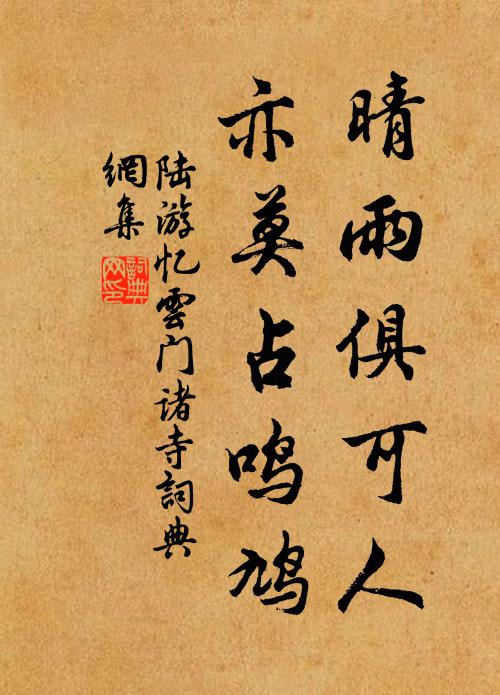 晴雨俱可人
亦莫占鸣鸠
陆游忆雲门诸寺詞典
網集
詞典
网印